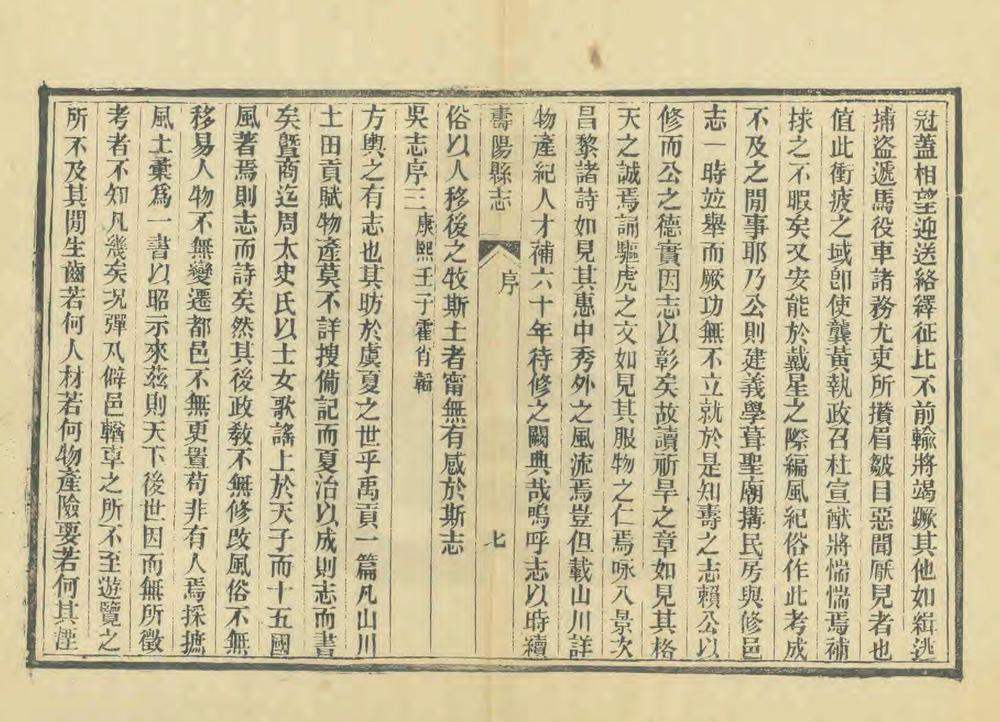 冠蓋相望迎送絡繹征比不前輸將竭蹶其他如緝逃
捕盜遞馬役車諸務尤吏所攢眉皺目惡聞厭見者也
值此衝疲之域卽使龔黃執政召杜宣猷將惴惴焉補
捄之不暇矣又安能於戴星之際編風紀俗作此考成
不及之閒事耶乃公則建義學葺聖廟搆民房與修邑
志一時竝舉而厥功無不立就於是知壽之志賴公以
修而公之德實因志以彰矣故讀祈旱之章如見其格
天之誠焉誦驅虎之文如見其服物之仁焉咏八景次
昌黎諸詩如見其惠中秀外之風流焉豈但載山川詳
物產紀人才補六十年待修之闕典哉嗚呼志以時續
壽陽縣志 序 七
俗以人移後之牧斯土者甯無有感於斯志
吳志序三 康熙壬子霍肖𮧯
方輿之有志也其助於虞夏之世乎禹貢一篇凡山川
土田貢賦物產莫不詳搜備記而夏治以成則志而書
矣曁商迄周太史氏以士女歌謠上於天子而十五國
風著焉則志而詩矣然其後政敎不無修改風俗不無
移易人物不無變遷都邑不無更置苟非有人焉採摭
風土彙爲一書以昭示來茲則天下後世因而無所徵
考者不知凡幾矣況彈丸僻邑輶車之所不至遊覽之
所不及其閒生齒若何人材若何物產險要若何其湮